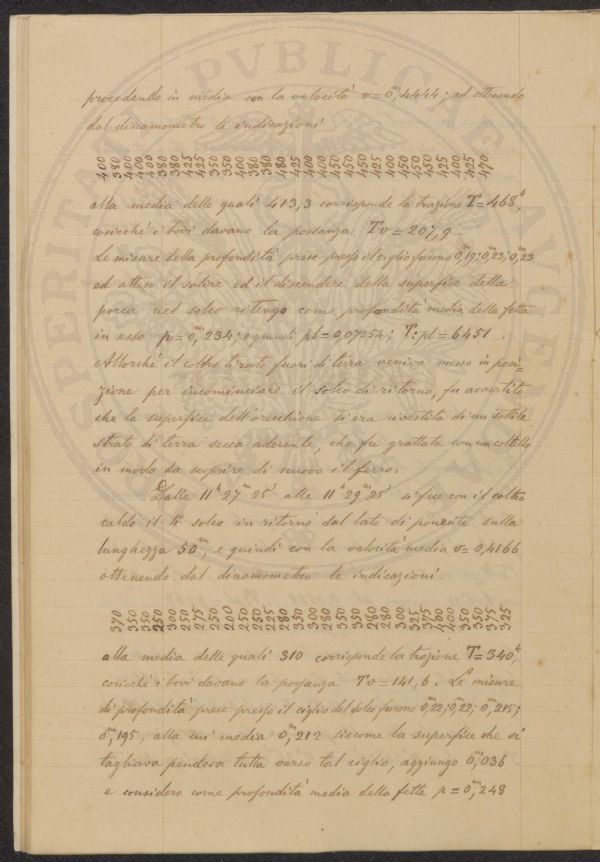 procedendo in media con la velocità v = 0,ᵐ4444; ed ottenendo
dal dinamometro le indicazioni
400 380 400 400 400 380 380 425 425 350 350 400 380 380 480 425 400 400 450 450 450 425 400 450 450 450 425 400 425 470
alla media delle quali 413,3 corrisponde la trazione T = 468,ᵏ
cosicchè i bovi davano la possanza Tv = 207,9
Le misure della profondità prese presso il ciglio furono 0,ᵐ19; 0,ᵐ23; 0,ᵐ23
ed atteso il salire ed il discendere della superfice della
porca nel solco ritengo come profondità media della fetta
in esso p = 0,ᵐ234; e quindi pl = 0,07254; T:pl = 6451.
Allorchè il coltro tirato fuori di terra veniva messo in posi=
zione per incominciare il solco di ritorno, fu avvertito
che la superfice dell'orecchione si era rivestita di un sottile
strato di terra secca aderente, che fu grattata con un coltello
in modo da scoprire di nuovo il ferro.
Dalle 11ʰ 27ᵐ 25ˢ alle 11ʰ 29ᵐ 25ˢ si fece con il coltro
caldo il 4° solco in ritorno dal lato di ponente sulla
lunghezza 50,ᵐ e quindi con la velocità media v = 0,4166
ottenendo dal dinamometro le indicazioni
370 350 350 250 300 250 275 250 200 250 250 225 280 350 300 280 350 350 280 280 300 325 375 400 400 350 350 375 325
alla media delle quali 310 corrisponde la trazione T = 340,ᵏ
cosicchè i bovi davano la possanza Tv = 141,6. Le misure
di profondità prese presso il ciglio del solco furono 0,ᵐ22; 0,ᵐ22; 0,ᵐ215;
0,ᵐ195, alla cui media 0,ᵐ212 siccome la superfice che si
tagliava pendeva tutta verso tal ciglio, aggiungo 0,ᵐ036
e considero come profondità media della fetta p = 0,ᵐ248